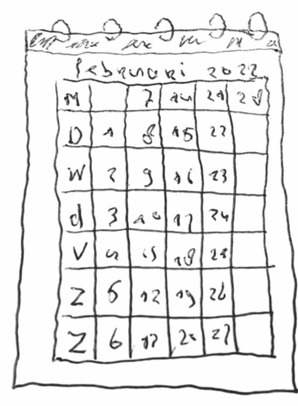 februari 2022
M 7 14 21 28
D 1 8 15 22
W 2 9 16 23
d 3 10 17 24
V 4 11 18 25
Z 5 12 19 26
Z 6 13 20 27